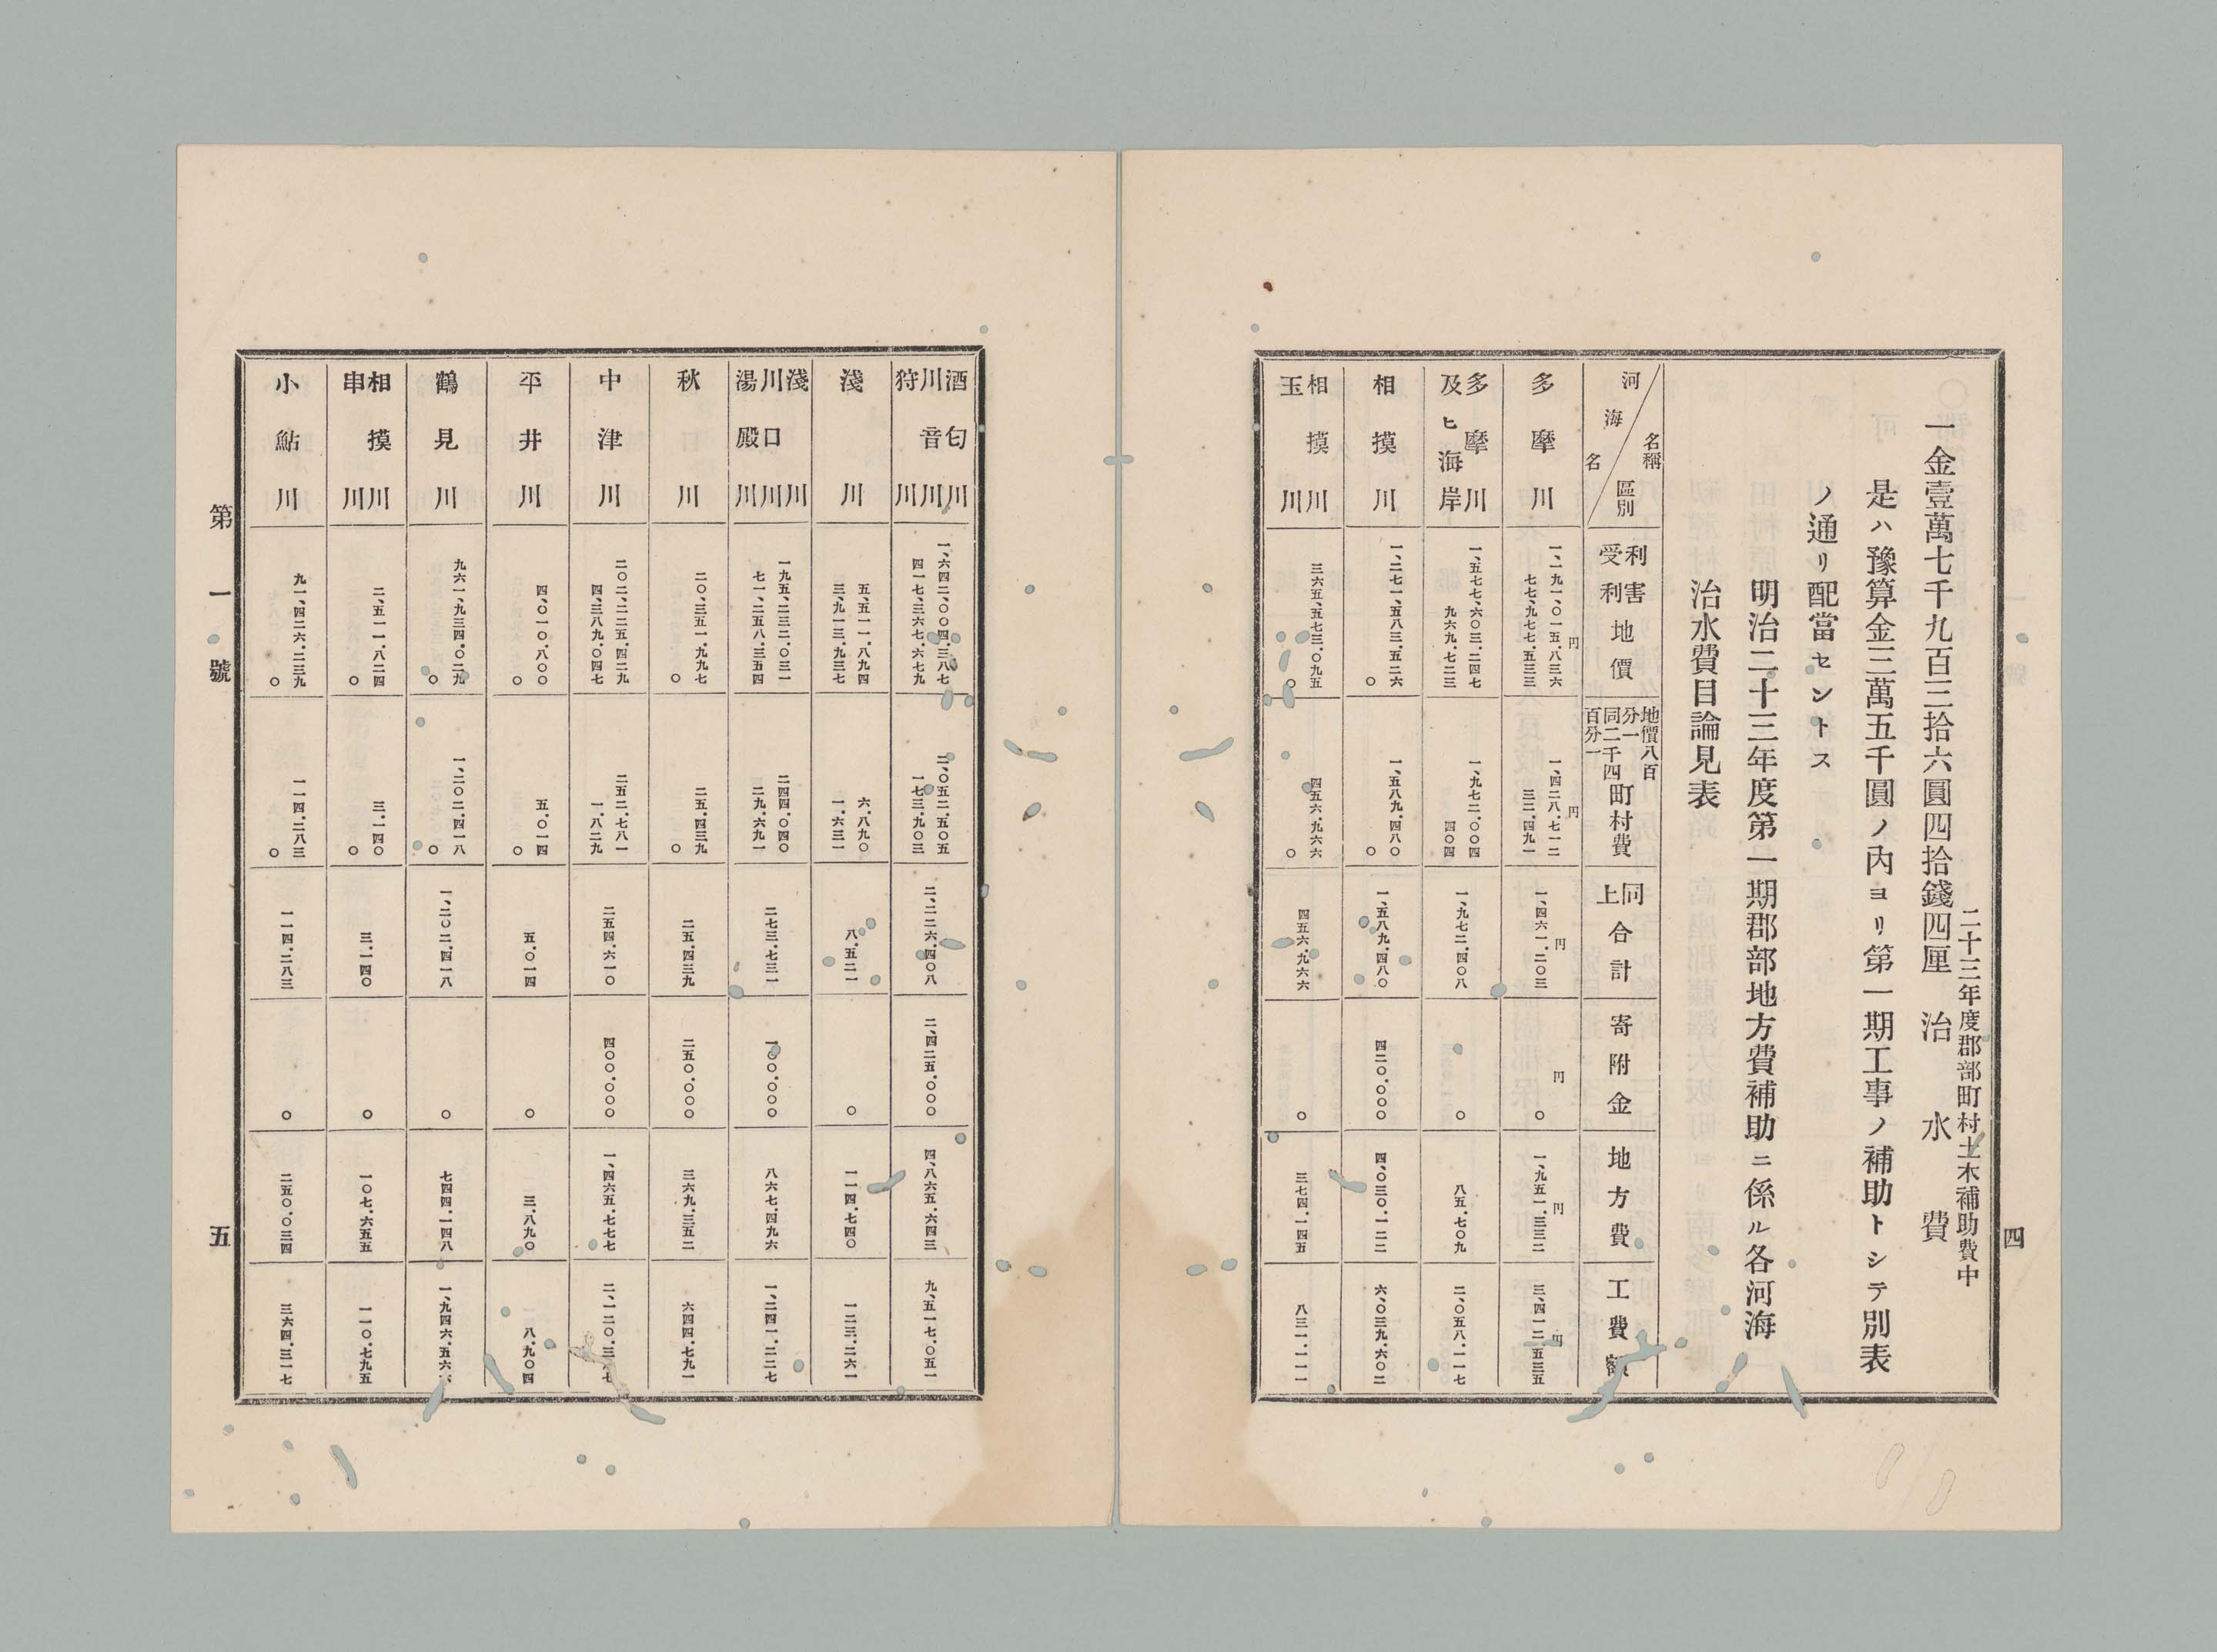 四
二十三年度郡部町村土木補助費中
一金壹萬七千九百三拾六圓四拾錢四厘　治水費
是ハ豫算金三萬五千圓ノ內ヨリ第一期工事ノ補助トシテ別表
ノ通リ配當セントス
明治二十三年度第一期郡部地方費補助ニ係ル各河海
治水費目論見表
名稱區別
河海名
利害
受利地價
地價八百分一
同二千四百分一
町村費
同上合計
寄附金
地方費
工費額
多摩川
円
一、一九一、〇一五.八三六
七七、九七七.五三三
円
一、四二八.七一二
三二.四九一
円
一、四六一.二〇三
円
〇
円
一、九五一.三三二
円
三、四一二.五三五
多摩川
及ヒ海岸
一、五七七、六〇三.二四七
九六九.七二三
一、九七二.〇〇四
四〇四
一、九七二.四〇八
〇
八五.七〇九
二、〇五八.一一七
相摸川
一、二七一、五八三.五二六
〇
一、五八九.四八〇
〇
一、五八九.四八〇
四二〇.〇〇〇
四、〇三〇.一二二
六、〇三九.六〇二
相摸川
玉川
三六五、五七三.〇九五
〇
四五六.九六六
〇
四五六.九六六
〇
三七四.一四五
八三一.一一一
酒匂川
川音川
狩川
一、六四二、〇〇四.三八七
四一七、三六七.六七九
二、〇五二.五〇五
一七三.九〇三
二、二二六.四〇八
二、四二五.〇〇〇
四、八六五.六四三
九、五一七.〇五一
淺川
五、五一一.八九四
三、九一三.九三七
六.八九〇
一.六三一
八.五二一
〇
一一四.七四〇
一二三.二六一
淺川
川口川
湯殿川
一九五、二三二.〇三一
七一、二五八.三五四
二四四.〇四〇
二九.六九一
二七三.七三一
一〇〇.〇〇〇
八六七.四九六
一、二四一.二二七
秋川
二〇、三五一.九九七
〇
二五.四三九
〇
二五.四三九
二五〇.〇〇〇
三六九.三五二
六四四.七九一
中津川
二〇二、二二五.四二九
四、三八九.〇四七
二五二.七八一
一.八二九
二五四.六一〇
四〇〇.〇〇〇
一、四六五.七七七
二、一二〇.三
平井川
四、〇一〇.八〇〇
〇
五.〇一四
〇
五.〇一四
〇
三.八九〇
八.九〇四
鶴見川
九六一、九三四.〇二九
〇
一、二〇二.四一八
〇
一、二〇二.四一八
〇
七四四.一四八
一、九四六.五六
相摸川
串川
二、五一一.八二四
〇
三.一四〇
〇
三.一四〇
〇
一〇七.六五五
一一〇.七九五
小鮎川
九一、四二六.二三九
〇
一一四.二八三
〇
一一四.二八三
〇
二五〇.〇三四
三六四.三一七
第一號
五